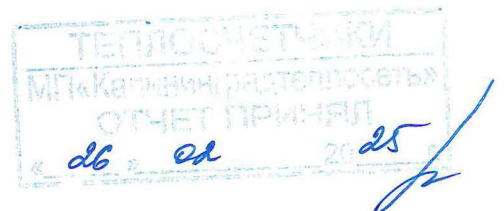 ТЕПЛОСЧЕТЧИКИ
МП«Калининградтеплосеть»
ОТЧЕТ ПРИНЯЛ
« 26 » 02 2025 г